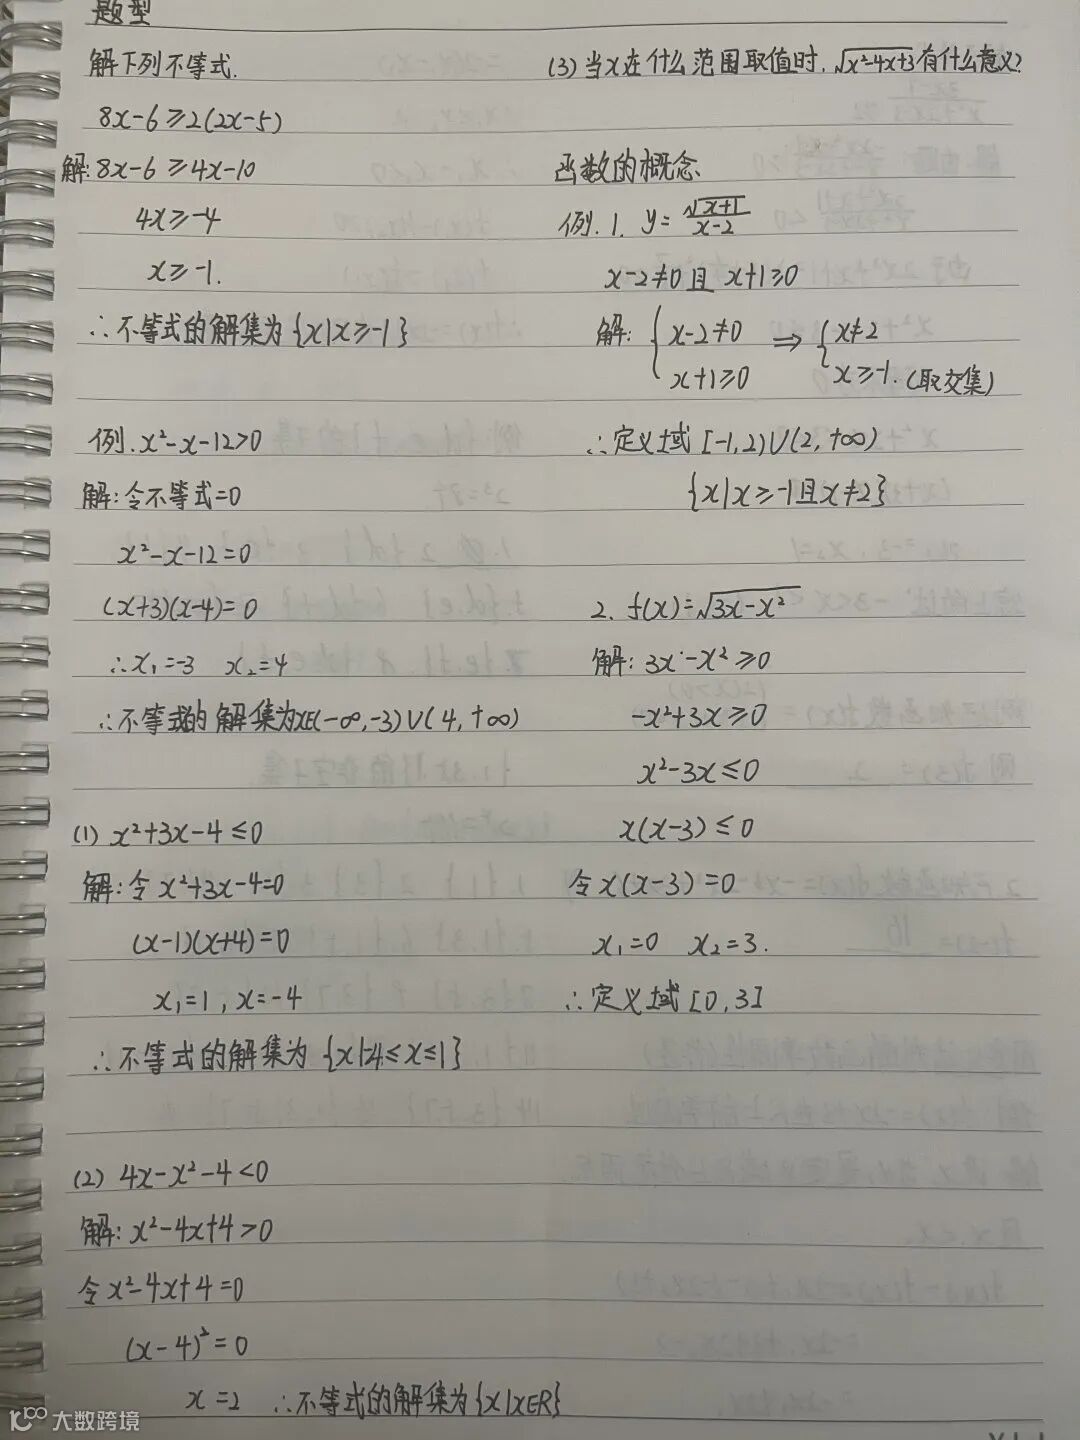 题型
解下列不等式.
8x-6≥2(2x-5)
解:8x-6≥4x-10
4x≥-4
x≥-1.
∴不等式的解集为{x|x≥-1}
例.x²-x-12>0
解:令不等式=0
x²-x-12=0
(x+3)(x-4)=0
∴x₁=-3 x₂=4
∴不等式的解集为x∈(-∞,-3)∪(4,+∞)
(1) x²+3x-4≤0
解:令x²+3x-4=0
(x-1)(x+4)=0
x₁=1,x=-4
∴不等式的解集为{x|-4≤x≤1}
(2) 4x-x²-4<0
解:x²-4x+4>0
令x²-4x+4=0
(x-4)²=0
x=2 ∴不等式的解集为{x|x∈R}
(3)当x在什么范围取值时.√(x²-4x+3)有什么意义?
函数的概念
例.1. y=√(x+1)/(x-2)
x-2≠0且x+1≥0
解:{x-2≠0 ⇒ {x≠2
x+1≥0 x≥-1.(取交集)
∴定义域[-1,2)∪(2,+∞)
{x|x≥-1且x≠2}
2. f(x)=√(3x-x²)
解:3x-x²≥0
-x²+3x≥0
x²-3x≤0
x(x-3)≤0
令x(x-3)=0
x₁=0 x₂=3.
∴定义域[0,3]
大数跨境